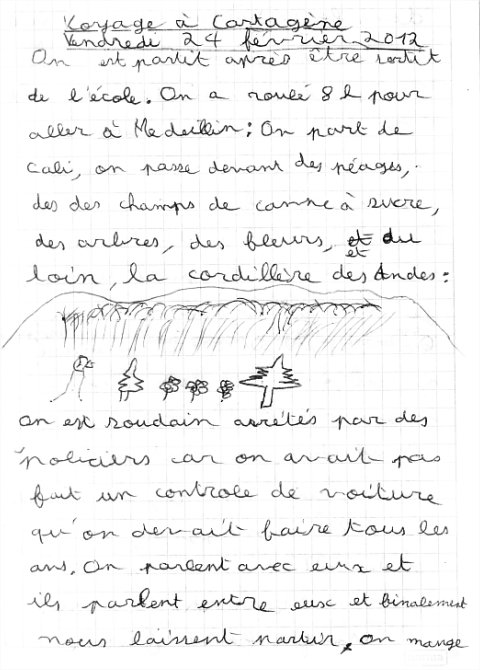 Voyage à Cartagène
Vendredi 24 février 2012
On est partit après être sortit
de l'école. On a roulé 8 h pour
aller à Medellin : On part de
Cali, on passe devant des péages,
des des champs de canne à sucre,
des arbres, des fleurs, et du
et
loin, la cordillère des Andes :
on est soudain arrétés par des
policiers car on avait pas
fait un controle de voiture
qu'on devait faire tous les
ans. On parlent avec eux et
ils parlent entre eux et finalement
nous laissent partir, on mange